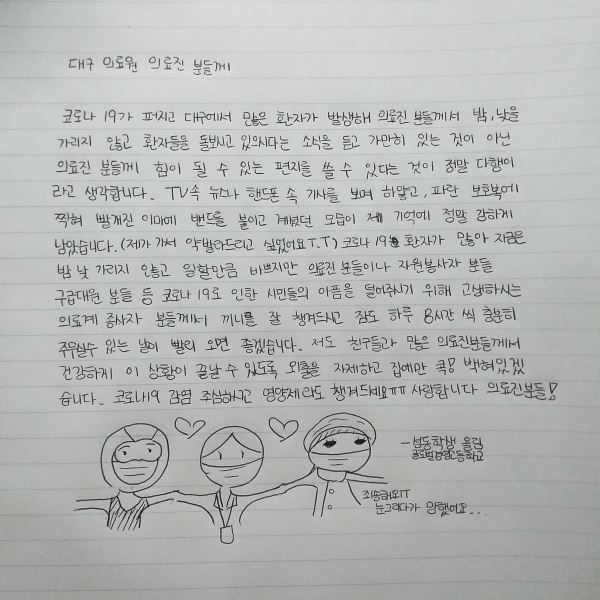 대구 의료원 의료진 분들께
코로나 19가 퍼지고 대구에서 많은 환자가 발생해 의료진 분들께서 밤, 낮을
가리지 않고 환자들을 돌보시고 있으시다는 소식을 듣고 가만히 있는 것이 아닌
의료진 분들께 힘이 될 수 있는 편지를 쓸 수 있다는 것이 정말 다행이
라고 생각합니다. TV속 뉴스나 핸드폰 속 기사를 보며 하얗고, 파란 보호복에
찍혀 빨개진 이마에 밴드를 붙이고 계셨던 모습이 제 기억에 정말 강하게
남았습니다. (제가 가서 약발라드리고 싶었어요T.T) 코로나 19 환자가 많아 지금은
밤 낮 가리지 않고 일할만큼 바쁘지만 의료진 분들이나 자원봉사자 분들
구급대원 분들 등 코로나 19로 인한 시민들의 아픔을 덜어주시기 위해 고생하시는
의료계 종사자 분들께서 끼니를 잘 챙겨드시고 잠도 하루 8시간 씩 충분히
주무실수 있는 날이 빨리 오면 좋겠습니다. 저도 친구들과 많은 의료진분들께서
건강하게 이 상황이 끝날 수 있도록 외출을 자제하고 집에만 콕! 박혀있겠
습니다. 코로나19 감염 조심하시고 영양제라도 챙겨드세요ㅠㅠ 사랑합니다 의료진분들!
-성동학생 올림
죄송해요TT
눈그리다가 망했어요...